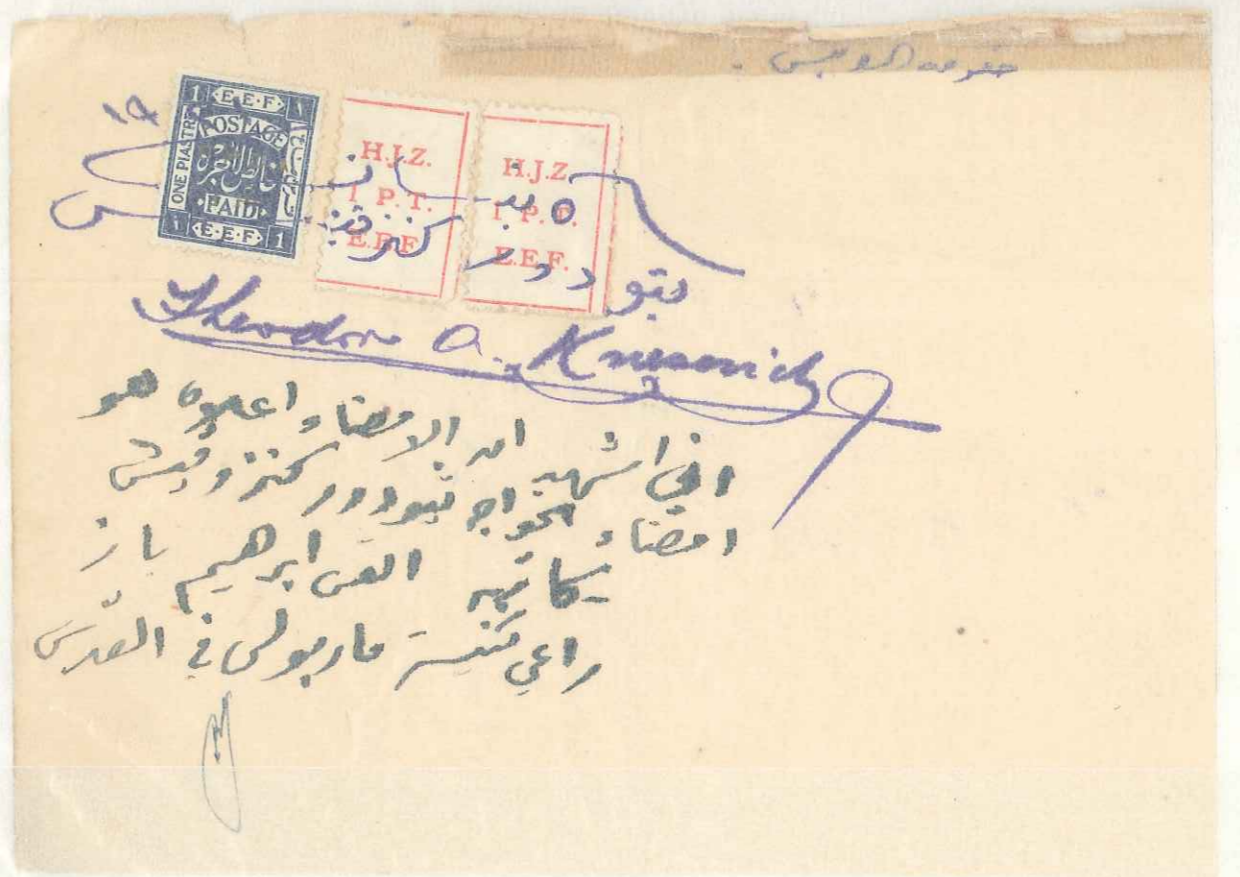 1 E·E·F ١
POSTAGE
ONE PIASTRE
PAID
١ E·E·F 1
H.J.Z.
1 P.T.
E.E.F.
H.J.Z.
1 P.T.
E.E.F.
١٩
٥ نيسان
تيودور كنزوفيتش
Theodore A. Knesevich
اني اشهد ان الامضاء اعلاه هو
امضاء الخواجه تيودور كنزوفيتش
كاتبه القس ابرهيم باز
راعي كنيسة مار بولس في القدس